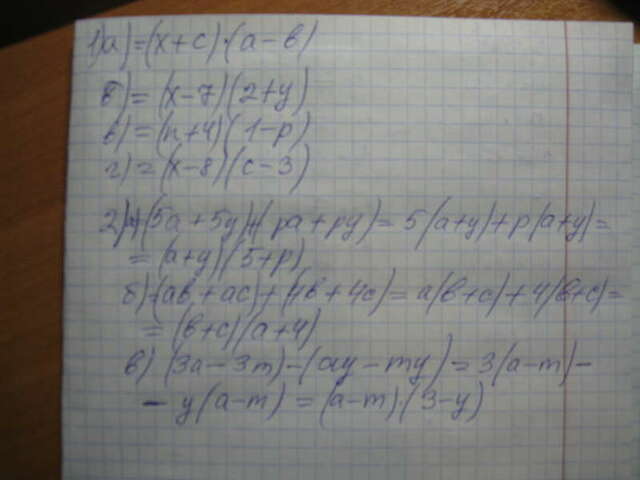 1)а) =(x+c)·(a-в)
б) = (x-7)(2+y)
в) = (n+4)(1-p)
г) = (x-8)(c-3)
2) (5a+5y)+(pa+py) = 5(a+y)+p(a+y) =
= (a+y)(5+p)
б) (aв+ac)+(4в+4c) = a(в+c)+4(в+c) =
= (в+c)(a+4)
в) (3a-3m)-(ay-my) = 3(a-m)-
- y(a-m) = (a-m)·(3-y)